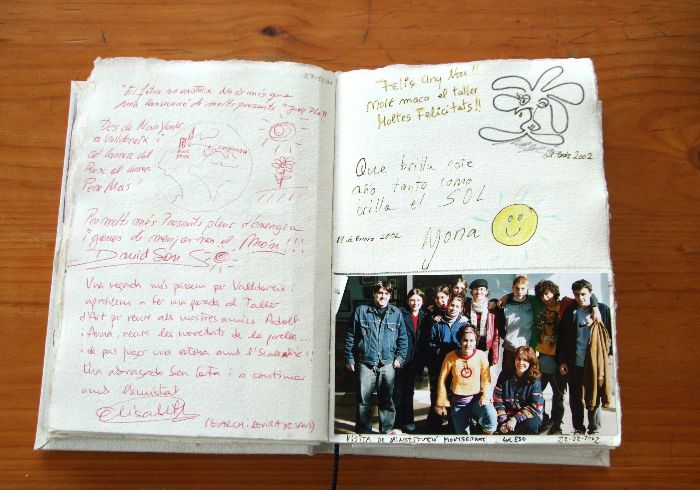 "El futur no existeix. No és més que
una successió de molts presents". Josep Pla
Des de Nova York
a Valldoreix i
del carrer del
Pere al carrer
Pere Mas
Prometo més presents plens d'energia
i ganes de menjar-nos el Món!!!
David Son
Una vegada més passem per Valldoreix i
aprofitem a fer una parada al Taller
d'Art per veure als nostres amics Adolf
i Anna i veure les novetats de la parella...
i de pas jugar una estona amb l'Scalextric!!
Una abraçada ben forta i a continuar
amb l'amistat
Elisabeth
Feliç Any Nou!!
Molt maco el taller
Moltes Felicitats!!
2002
Que brilla este
año tanto como
brilla el SOL
18 de Enero 2002 Yona
VISITA DE L'INSTITUCIÓ MONTSERRAT 4t ESO 22-02-2002